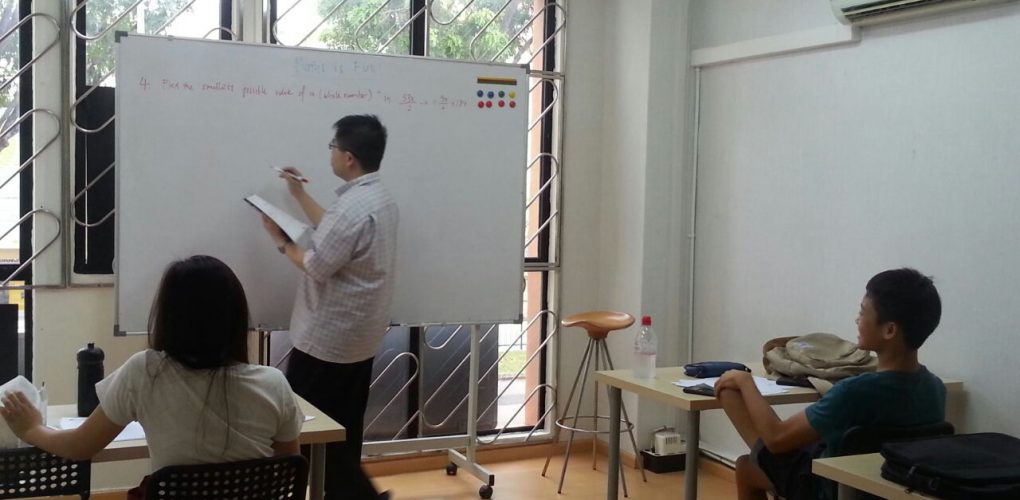 Maths is Fun
4. Find the smallest possible value of n (whole number)